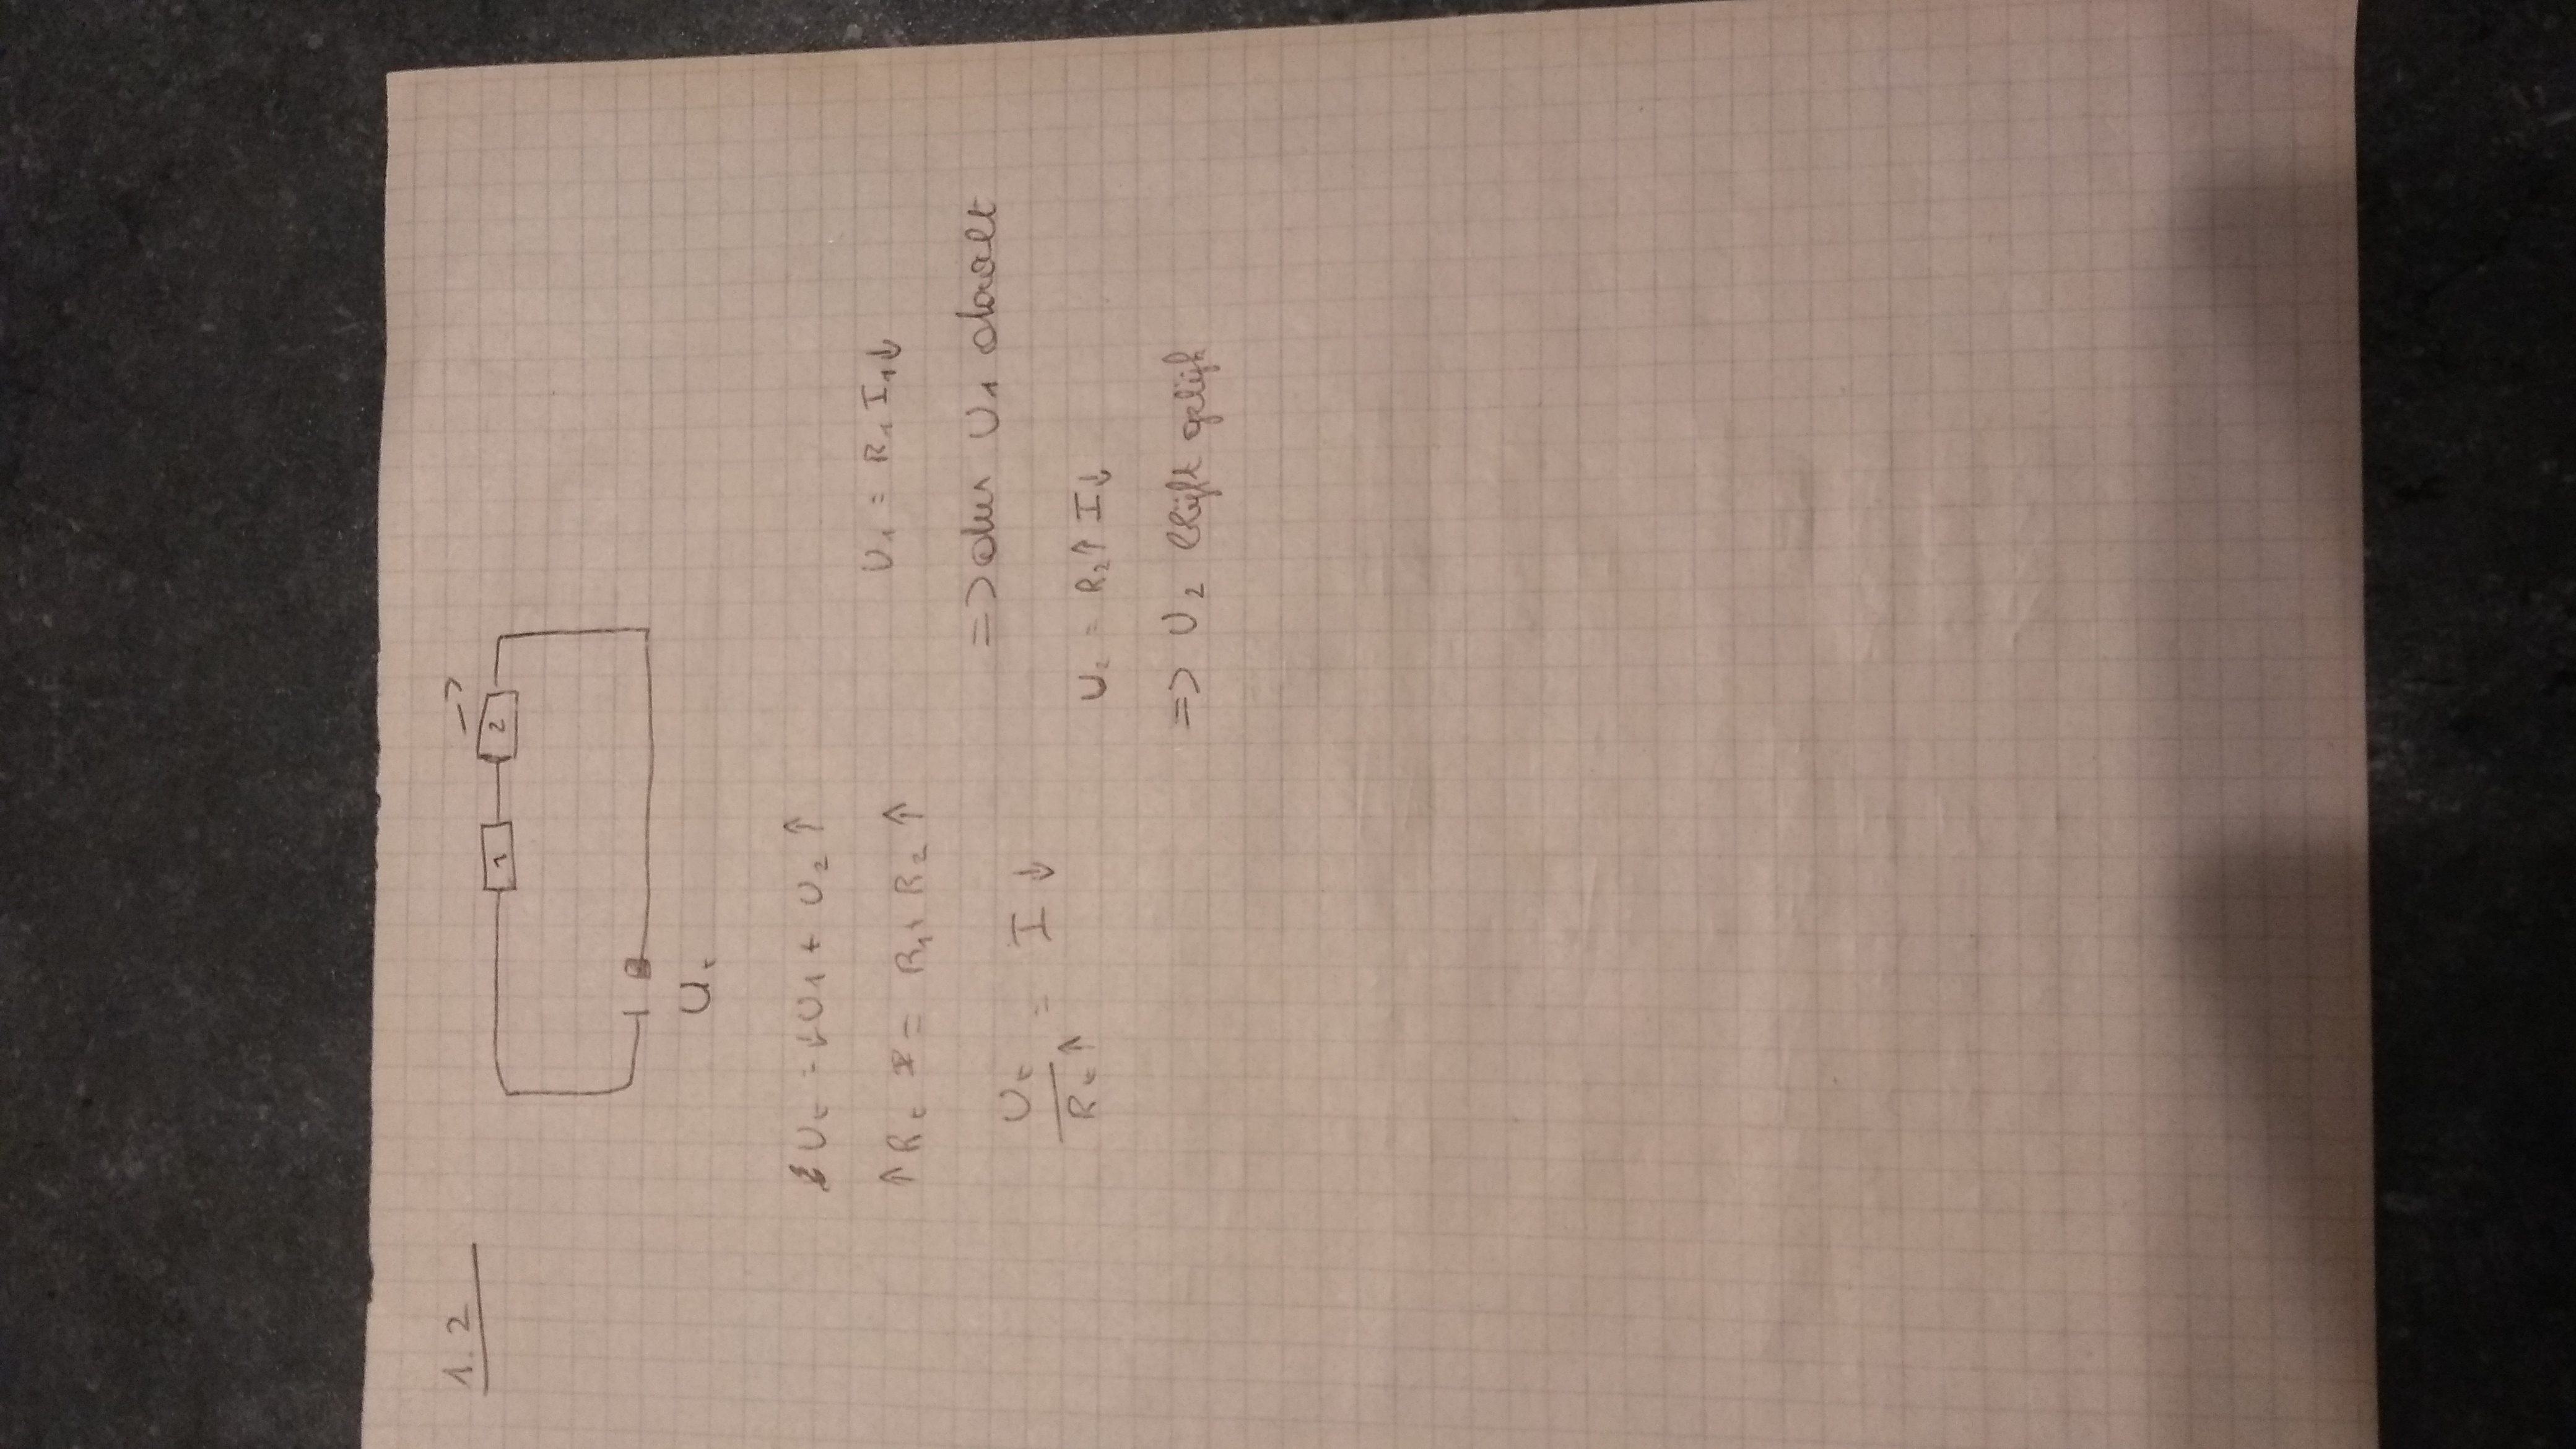 1.2
1 2
Ut
Ut = ↓U1 + U2 ↑
↑ Rt = R1 + R2 ↑
Ut / Rt ↑ = I ↓
U1 = R1 I1 ↓
=> dus U1 daalt
U2 = R2 ↑ I ↓
=> U2 blijft gelijk